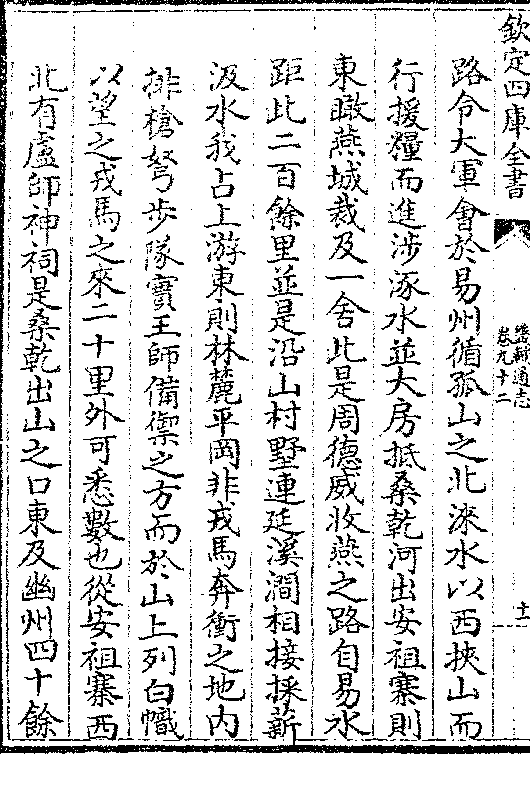 欽定四庫全書
畿輔通志
卷九十二
十一
路令大軍會於易州循孤山之北淶水以西挾山而
行援糧而進涉涿水並大房抵桑乾河出安祖寨則
東瞰燕城裁及一舍此是周德威收燕之路自易水
距此二百餘里並是沿山村墅連延溪澗相接採薪
汲水我占上游東則林麓平岡非戎馬奔衝之地内
排槍弩步隊實王師備禦之方而於山上列白幟
以望之戎馬之來二十里外可悉數也從安祖寨西
北有盧師神祠是桑乾出山之口東及幽州四十餘